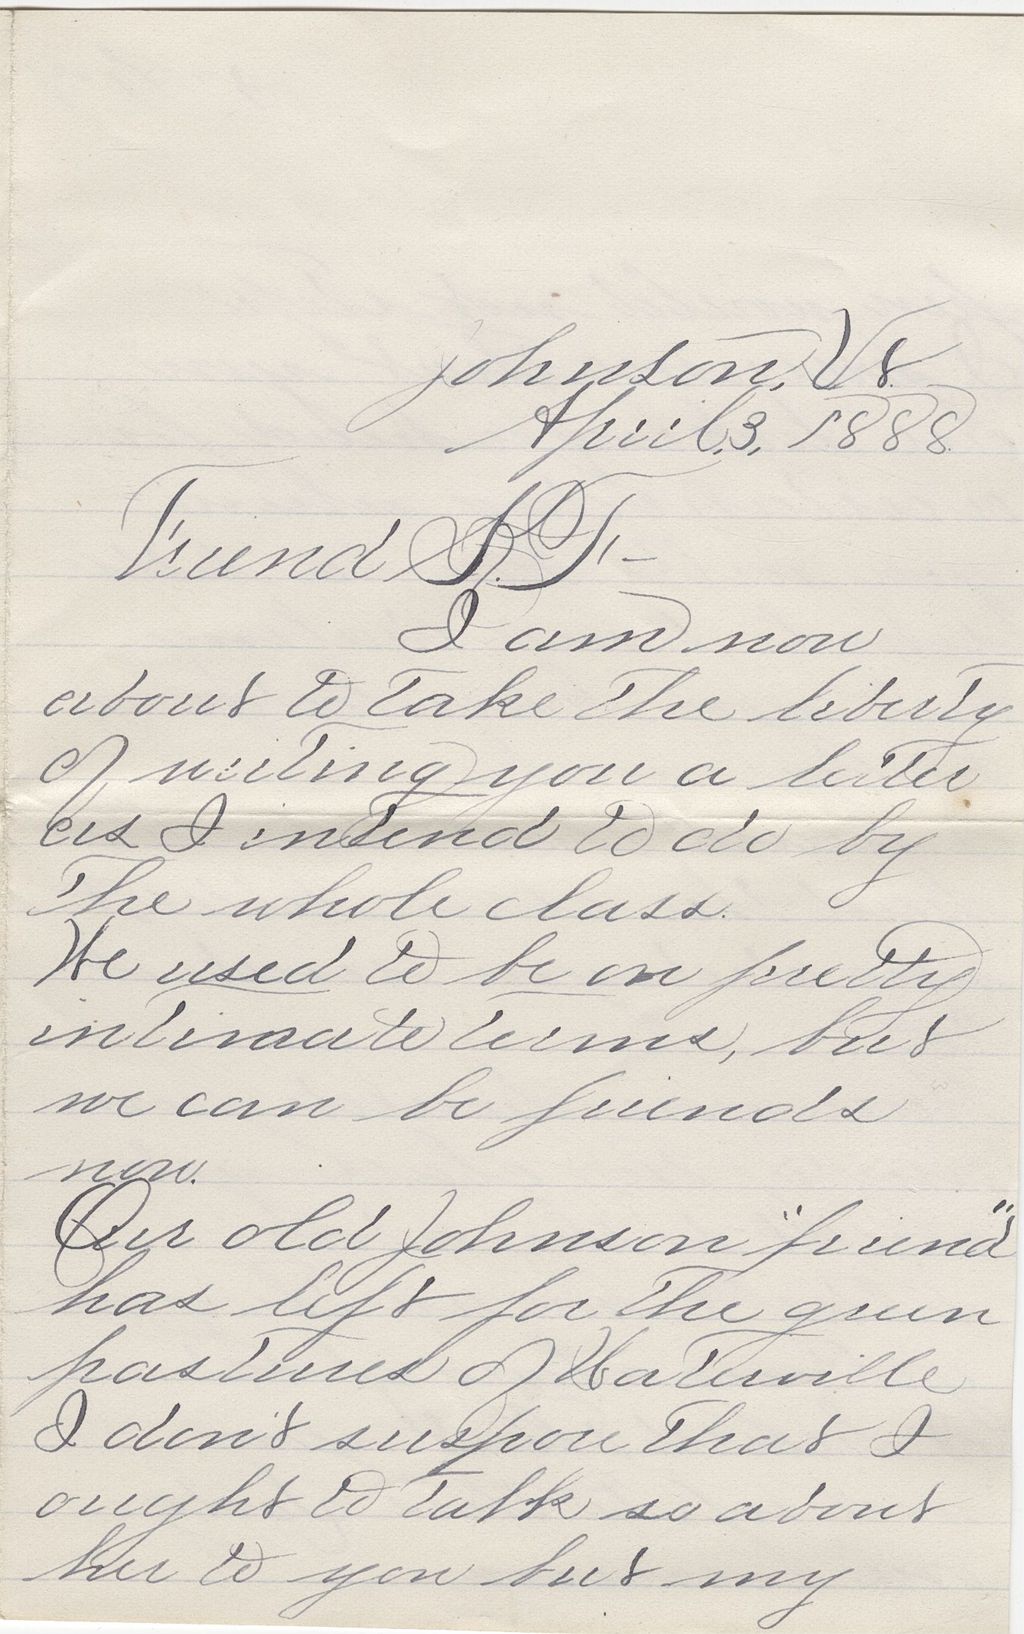 Johnson, Vt.
April, 3, 1888.
Friend S. F.—
I am now
about to take the liberty
of writing you a letter
as I intend to do by
the whole class.
We used to be on pretty
intimate terms, but
we can be friends
now.
Our old Johnson "friend"
has left for the green
pastures of Waterville
I don't suspose that I
ought to talk so about
her to you but my